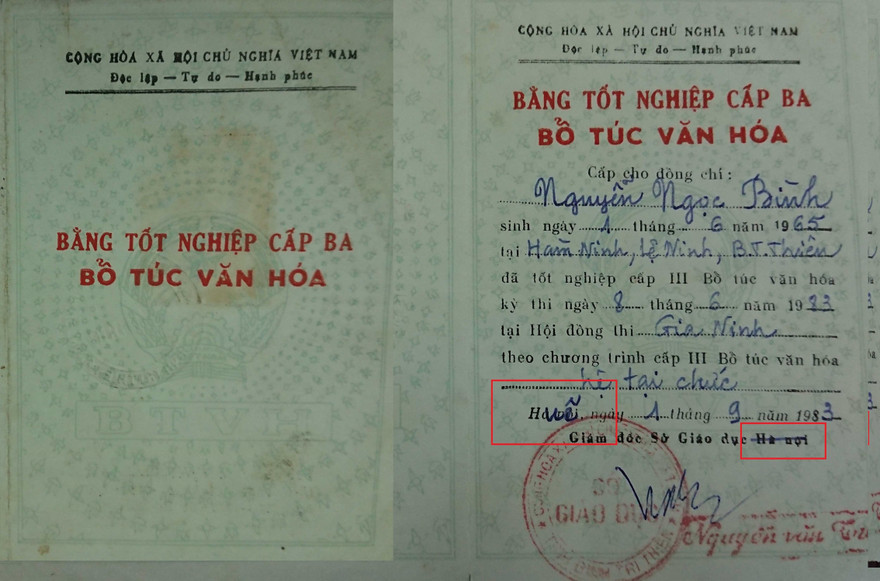 CỘNG HÒA XÃ HỘI CHỦ NGHĨA VIỆT NAM
Độc lập — Tự do — Hạnh phúc
BẰNG TỐT NGHIỆP CẤP BA
BỔ TÚC VĂN HÓA
CỘNG HÒA XÃ HỘI CHỦ NGHĨA VIỆT NAM
Độc lập — Tự do — Hạnh phúc
BẰNG TỐT NGHIỆP CẤP BA
BỔ TÚC VĂN HÓA
Cấp cho đồng chí:
Nguyễn Ngọc Bình
sinh ngày 1 tháng 6 năm 1965
tại Hàm Ninh, Lệ Ninh, B.T.Thiên
đã tốt nghiệp cấp III Bổ túc văn hóa
kỳ thi ngày 8 tháng 6 năm 1983
tại Hội đồng thi Gia Ninh
theo chương trình cấp III Bổ túc văn hóa
hệ tại chức
ngày 1 tháng 9 năm 1983
Giám đốc Sở Giáo dục Hà nội
SỞ
GIÁO DỤC
Nguyễn văn